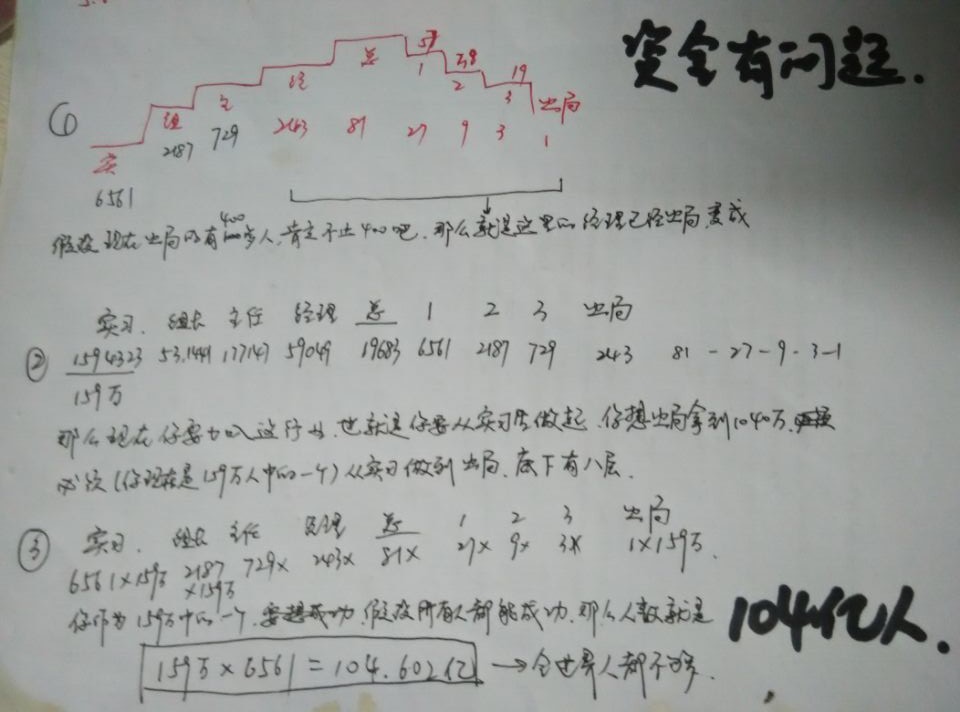 资金有问题.
总 59 1 2.8 2 19 3 出局
实 组 主 经
6561 2187 729 243 81 27 9 3 1
假设现在出局的有400多人,肯定不止400吧.那么就是这里的经理已经出局,变成
实习. 组长 主任 经理 总 1 2 3 出局
② 1594323 531441 177147 59049 19683 6561 2187 729 243 81 - 27 - 9 - 3 - 1
159万
那么现在你要加入这行业,也就是你要从实习生做起.你想出局拿到1040万.
必须(你现在是159万人中的一个)从实习做到出局.底下有八层.
③ 实习. 组长 主任 经理 总 1 2 3 出局
6561×159万 2187×159万 729× 243× 81× 27× 9× 3× 1×159万.
你作为159万中的一个.要想成功.假设所有人都能成功.那么人数就是
104亿人.
159万×6561=104.602亿 → 全世界人都不够.